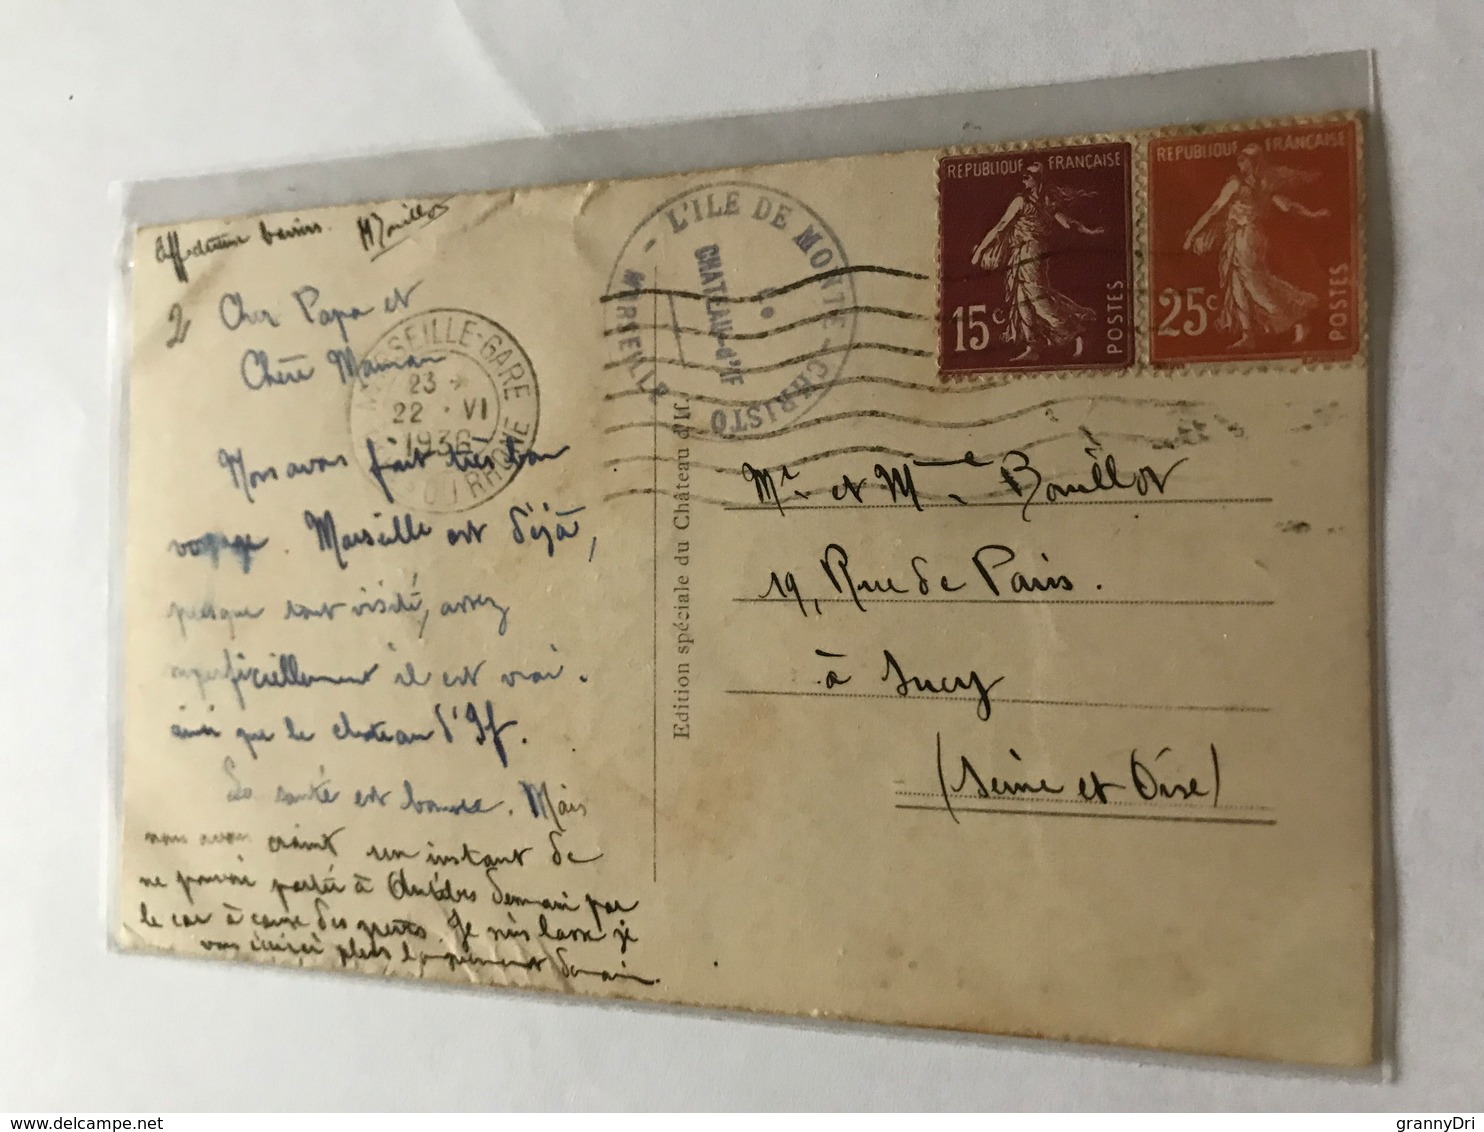 Affectueux baisers. M Bouillot
2 Cher Papa et
Chère Maman
Nous avons fait très bon
voyage. Marseille est déjà,
presque tout visité, assez
superficiellement il est vrai.
ainsi que le chateau d'If.
La santé est bonne. Mais
nous avons craint un instant de
ne pouvoir partir à demain par
le car à cause des grèves. Je suis lasse je
vous écrirai plus longuement demain.
MARSEILLE-GARE
23
22 · VI
1936
DU RHONE
L'ILE DE MONTE-CHRISTO
CHATEAU-d'IF
MARSEILLE
Edition spéciale du Château d'If.
REPUBLIQUE FRANÇAISE
15c
POSTES
REPUBLIQUE FRANÇAISE
25c
POSTES
Mr et Mme Bouillot
19, Rue de Paris.
à Sucy
(Seine et Oise)
grannyDri